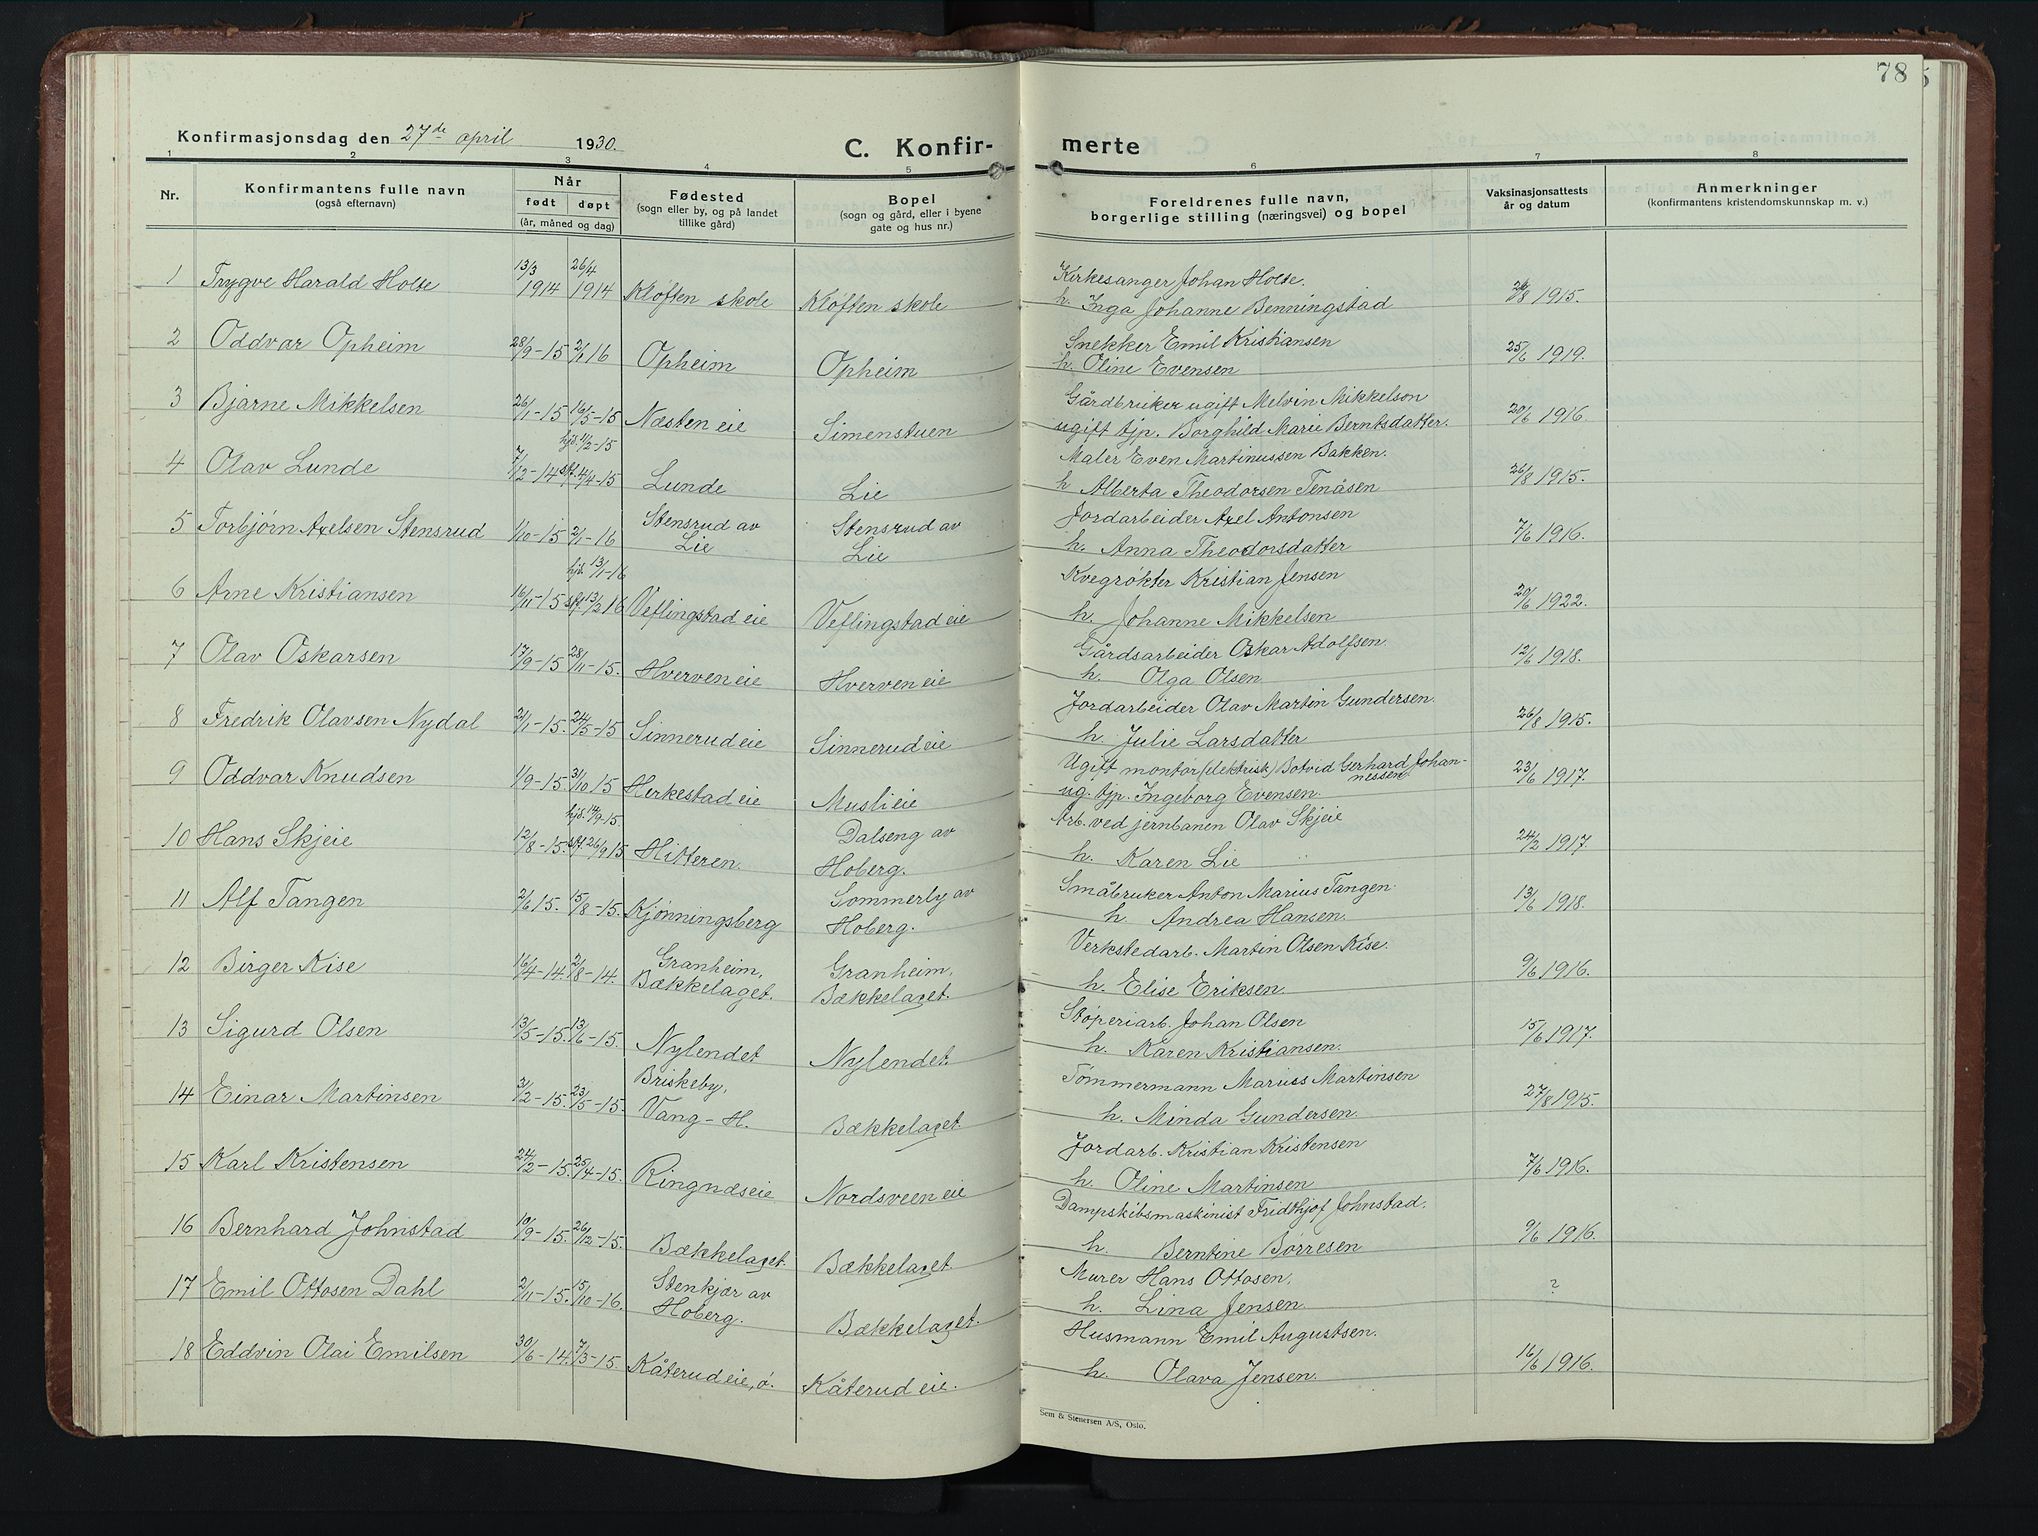 78
Konfirmasjonsdag den 27de april 1930.
C. Konfir-
merte
1 2 3 4 5 6 7 8
Nr.
Konfirmantens fulle navn
(også efternavn)
Når
født døpt
(år, måned og dag)
Fødested
(sogn eller by, og på landet
tillike gård)
Bopel
(sogn og gård, eller i byene
gate og hus nr.)
Foreldrenes fulle navn,
borgerlige stilling (næringsvei) og bopel
Vaksinasjonsattests
år og datum
Anmerkninger
(konfirmantens kristendomskunnskap m. v.)
1 Trygve Harald Holte 13/3 1914 26/4 1914 Kløften skole Kløften skole Kirkesanger Johan Holte.
h. Inga Johanne Benningstad 26/8 1915.
2 Oddvar Opheim 28/9-15 2/1 16 Opheim Opheim Snekker Emil Kristiansen
h. Oline Evensen 25/6 1919.
3 Bjarne Mikkelsen 26/1-15 16/5-15 Næsten eie Simenstuen Gårdbruker ugift Melvin Mikkelson
ugift tjp. Borghild Marie Berntsdatter. 20/6 1916.
4 Olav Lunde 7/12-14 hjd. 11/2-15 stf. 4/4-15 Lunde Lie Maler Even Martinussen Bakken.
h Alberta Theodorsen Tenåsen 26/8 1915.
5 Torbjørn Axelsen Stensrud 1/10-15 2/1-16 Stensrud av Lie Stensrud av Lie Jordarbeider Axel Antonsen
h. Anna Theodorsdatter 7/6 1916.
6 Arne Kristiansen 16/11-15 hjd. 13/1-16 stf 13/2 16 Veflingstad eie Veflingstad eie Kvegrøkter Kristian Jensen
h. Johanne Mikkelsen 20/6 1922.
7 Olav Oskarsen 17/9-15 28/11-15. Hverven eie Hverven eie Gårdsarbeider Oskar Adolfsen.
h. Olga Olsen 12/6 1918.
8 Fredrik Olavsen Nydal 2/1-15. 24/5-15 Sinnerud eie Sinnerud eie Jordarbeider Olav Martin Gundersen.
h. Julie Larsdatter 26/8 1915.
9 Oddvar Knudsen 1/9-15. 3/10 15 Herkestad eie Musli eie Ugift montør (elektrisk) Botvid Gerhard Johannessen
ug. tjp. Ingeborg Evensen. 23/6 1917.
10 Hans Skjeie 12/8-15. hjd. 14/9-15. stf. 26/9 15 Hitteren. Dalseng av Hoberg. Arb. ved jernbanen Olav Skjeie
h. Karen Lie " 24/2 1917.
11 Alf Tangen 2/6 15. 15/8-15. Kjønningsberg Sommerby av Hoberg. Småbruker Anton Marius Tangen.
h. Andrea Hansen. 13/6 1918.
12 Birger Kise 16/4-14. 2/8-14. Granheim, Bækkelaget. Granheim, Bækkelaget. Verkstedarb. Martin Olsen Kise.
h. Elise Eriksen. 9/6 1916.
13 Sigurd Olsen 13/5-15. 13/6-15. Nylendet Nylendet Støperiarb. Johan Olsen
h. Karen Kristiansen. 15/6 1917.
14 Einar Martinsen 3/2-15. 23/5-15. Briskeby, Vang-H. Bækkelaget. Tømmermann Marius Martinsen
h. Minda Gundersen. 27/8 1915.
15 Karl Kristensen 24/2-15. 25/4-15. Ringnæseie Nordsveen eie Jordarb. Kristian Kristensen
h. Oline Martinsen 7/6 1916.
16 Bernhard Johnstad 19/9-15. 26/12-15. Bækkelaget. Bækkelaget. Dampskibsmaskinist Fridthjof Johnstad.
h. Berntine Børresen 9/6 1916.
17 Emil Ottosen Dahl 2/11-15. 15/10-16. Stenkjær av Hoberg. Bækkelaget. Murer Hans Ottosen,
h. Lina Jensen. ?
18 Eddvin Olai Emilsen 30/6-14. 7/3-15. Kåterud eie, ø. Kåterud eie. Husmann Emil Augustsen.
h. Olava Jensen. 16/6 1916.
Sem & Stenersen A/S, Oslo.